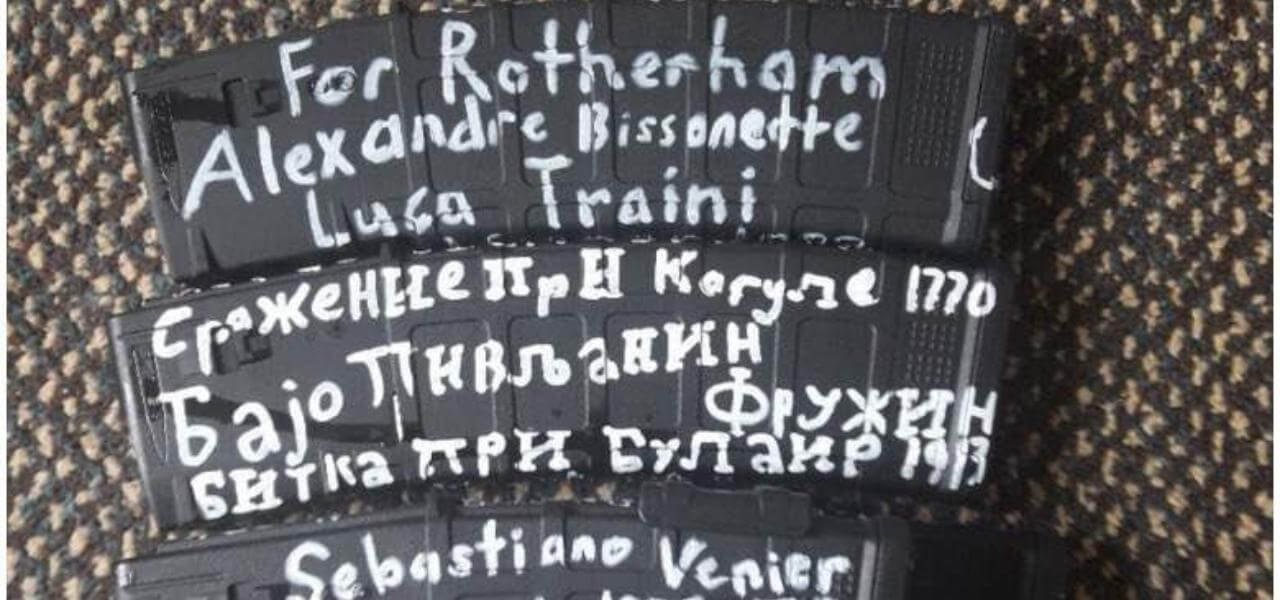 For Rotherham
Alexandre Bissonette
Luca Traini
Сражение при Кагуле 1770
Бајо Пивљанин
Фружин
Битка при Булаир 1913
Sebastiano Venier